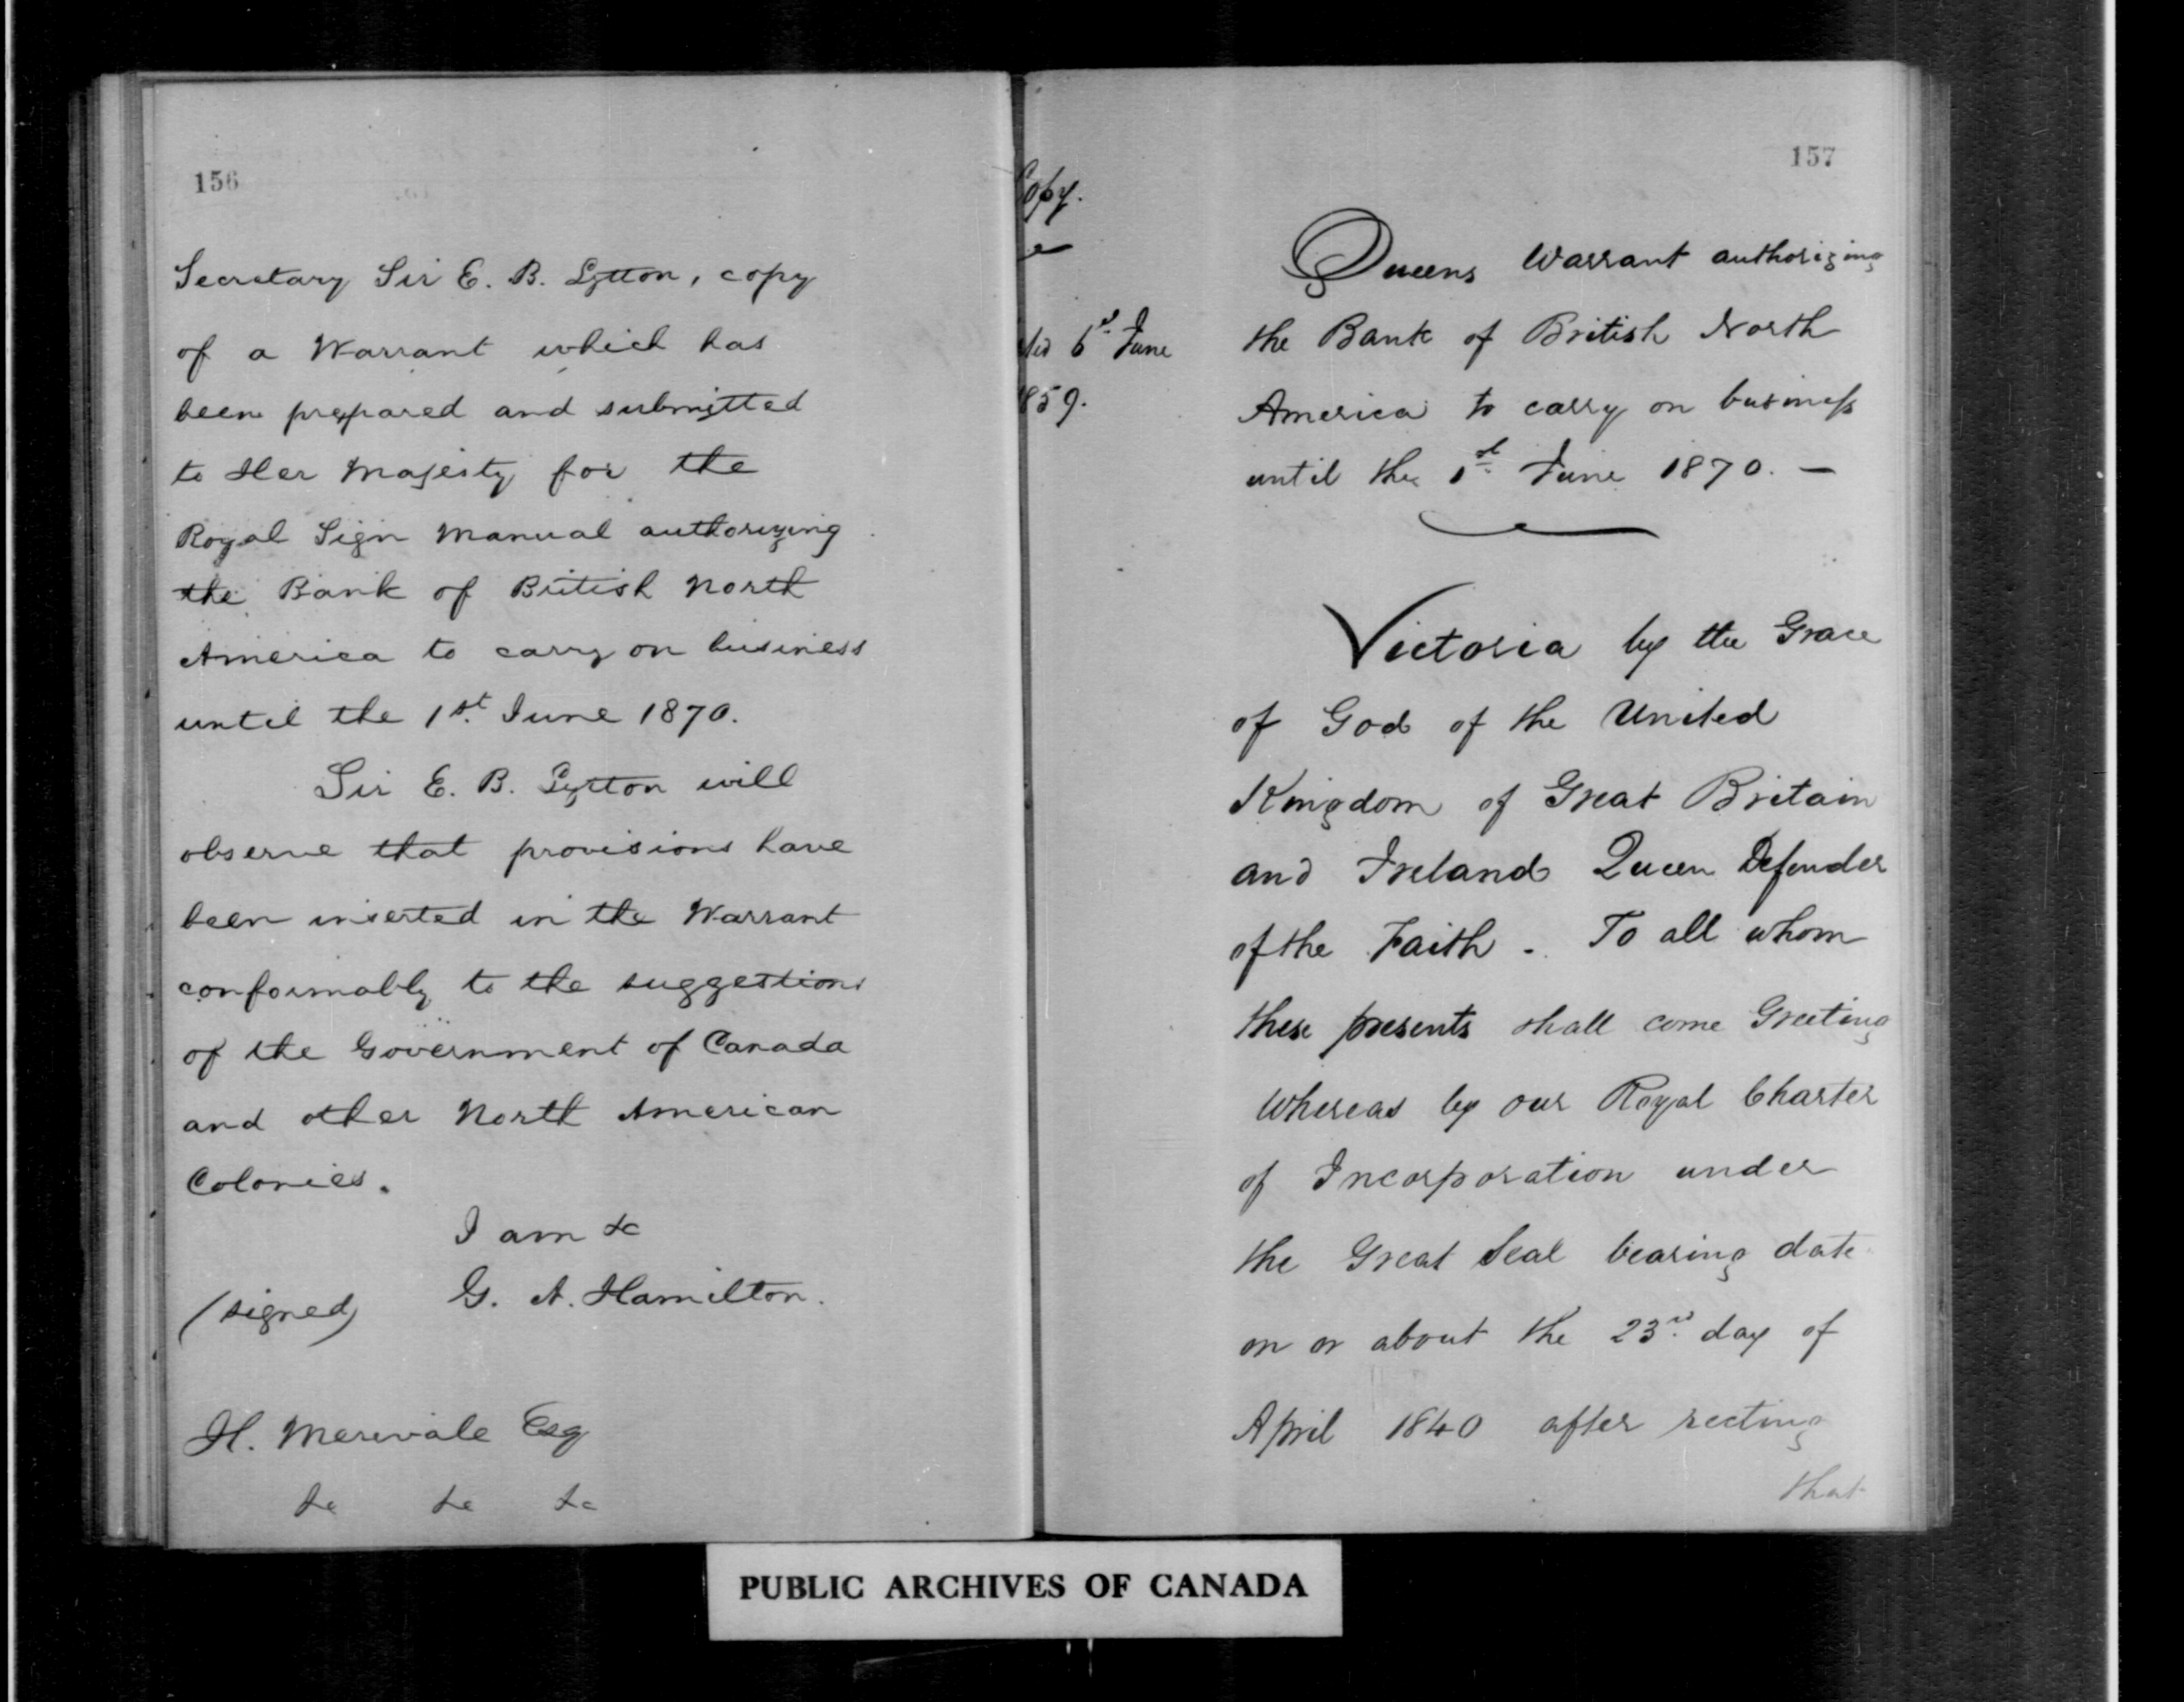 156
Secretary Sir E. B. Lytton, copy
of a Warrant which has
been prepared and submitted
to Her Majesty for the
Royal Sign Manual authorizing
the Bank of British North
America to carry on business
until the 1st. June 1870.
Sir E. B. Lytton will
observe that provisions have
been inserted in the Warrant
conformably to the suggestions
of the Government of Canada
and other North American
Colonies.
I am &c
(signed) G. A. Hamilton.
H. Merivale Esq
&c &c &c
157
Copy.
6th June
1859.
Queens Warrant authorizing
the Bank of British North
America to carry on business
until the 1st June 1870. —
Victoria by the Grace
of God of the United
Kingdom of Great Britain
and Ireland Queen Defender
of the Faith - To all whom
these presents shall come Greeting
Whereas by our Royal Charter
of Incorporation under
the Great Seal bearing date
on or about the 23rd day of
April 1840 after reciting
that
PUBLIC ARCHIVES OF CANADA